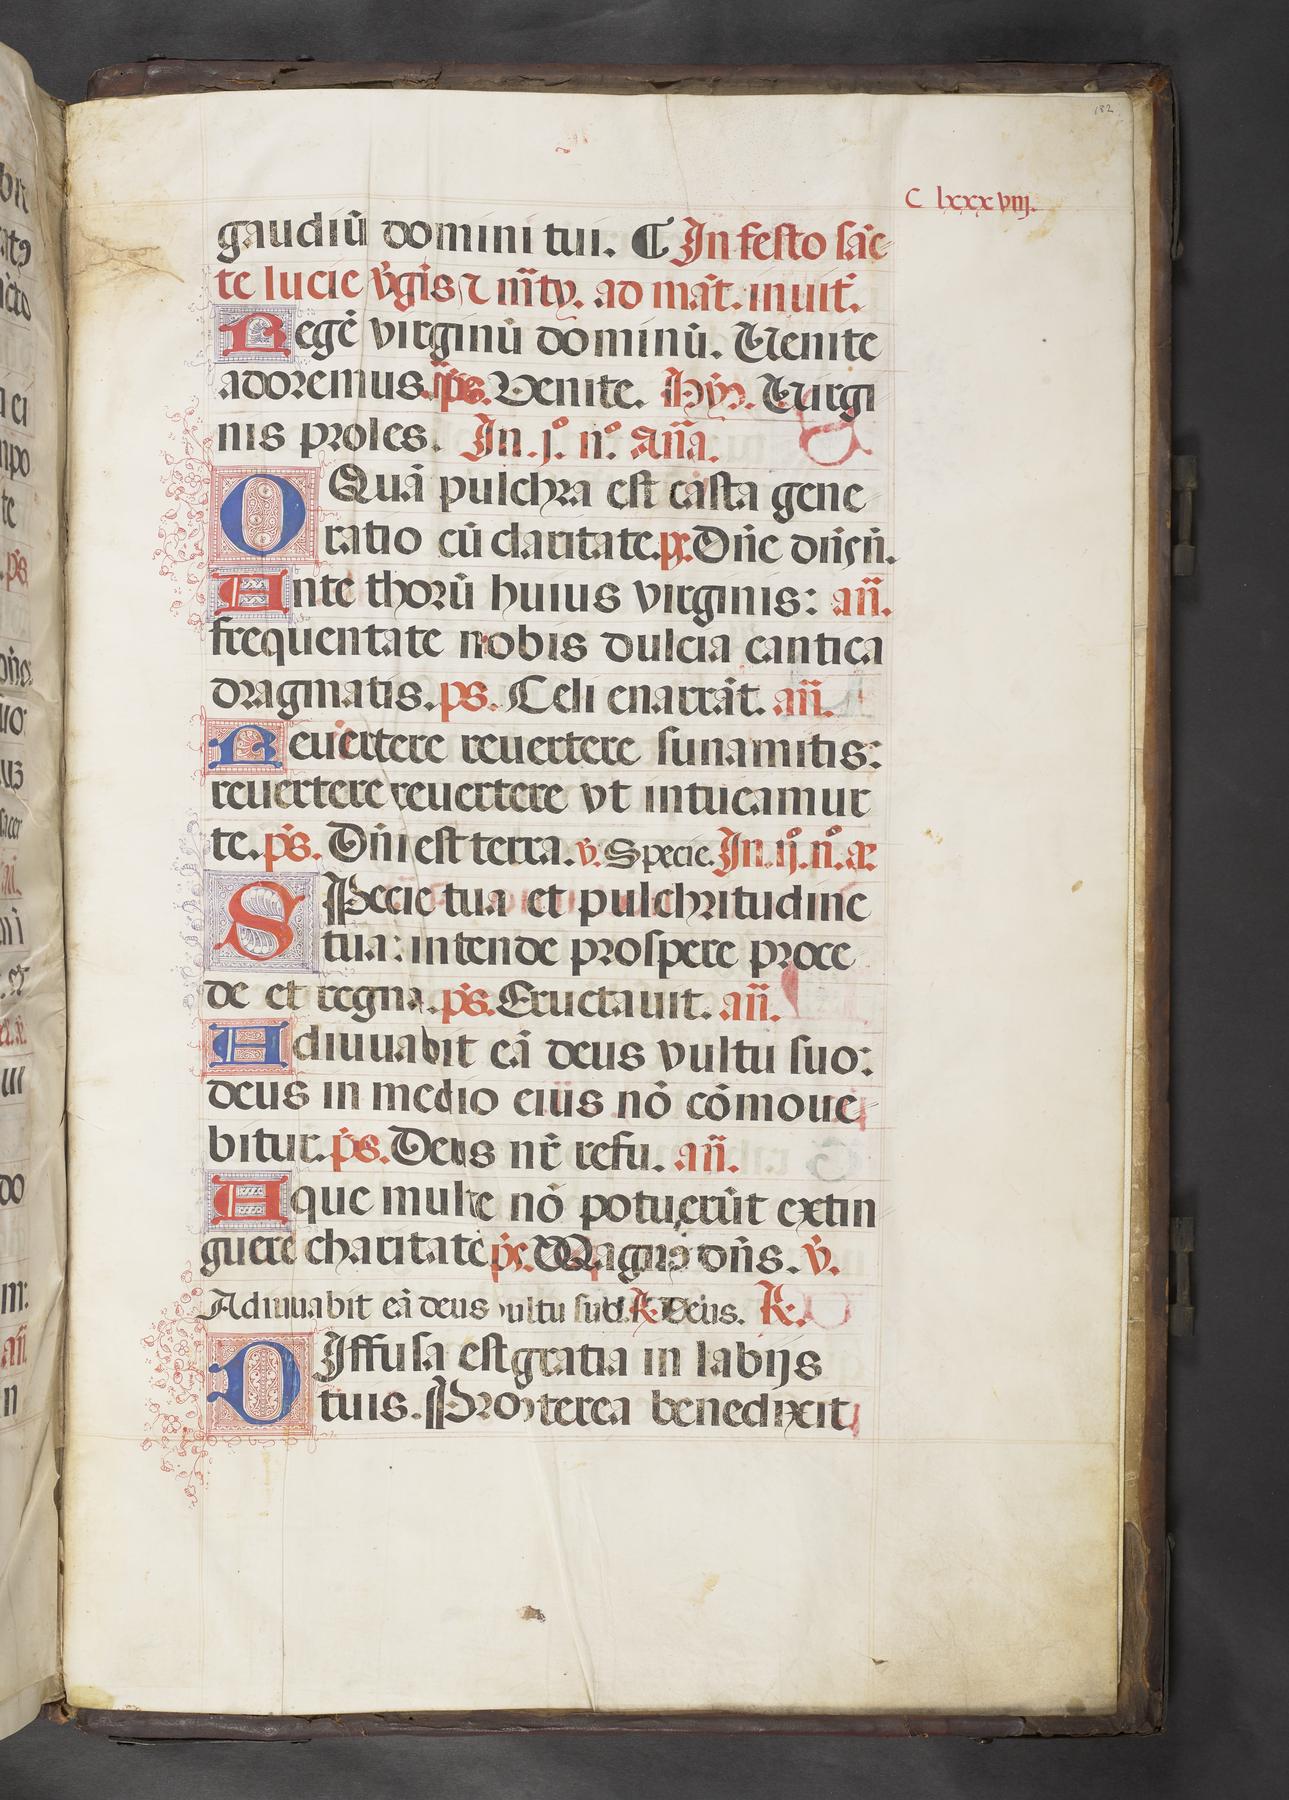 182
C lxxxviij.
gaudiū domini tui. ₵ In festo sāc
te lucie v̄gīs ⁊ m̄ty. ad māt. inuit̄.
Regē virginū dominū. Uenite
adoremus. ps. Venite. Hyn. Uirgi
nis proles. In. j.º n.º Añā.
O Quā pulchra est casta gene
ratio cū claritate. ps. Dñe dn̄s n̄.
Ante thorū huius virginis: añ.
frequentate nobis dulcia cantica
dragmatis. ps. Celi enarrāt. añ.
Reuertere reuertere sunamitis:
reuertere reuertere vt intueamur
te. ps. Dñi est terra. v̄. Specie. In. ij.º n.º a.
SPecie tua et pulchritudine
tua: intende prospere proce
de et regna. ps. Eructauit. añ.
Adiuuabit eā deus vultu suo:
deus in medio eius nō cōmoue
bitur. ps. Deus nr̄ refu. añ.
Aque multe nō potuerūt extin
guere charitatē ps. Magnꝰ dn̄s. v̄.
Adiuuabit eā deus vultu suo. R̄. Deus. R̄.
DIffusa est gratia in labijs
tuis. Propterea benedixit